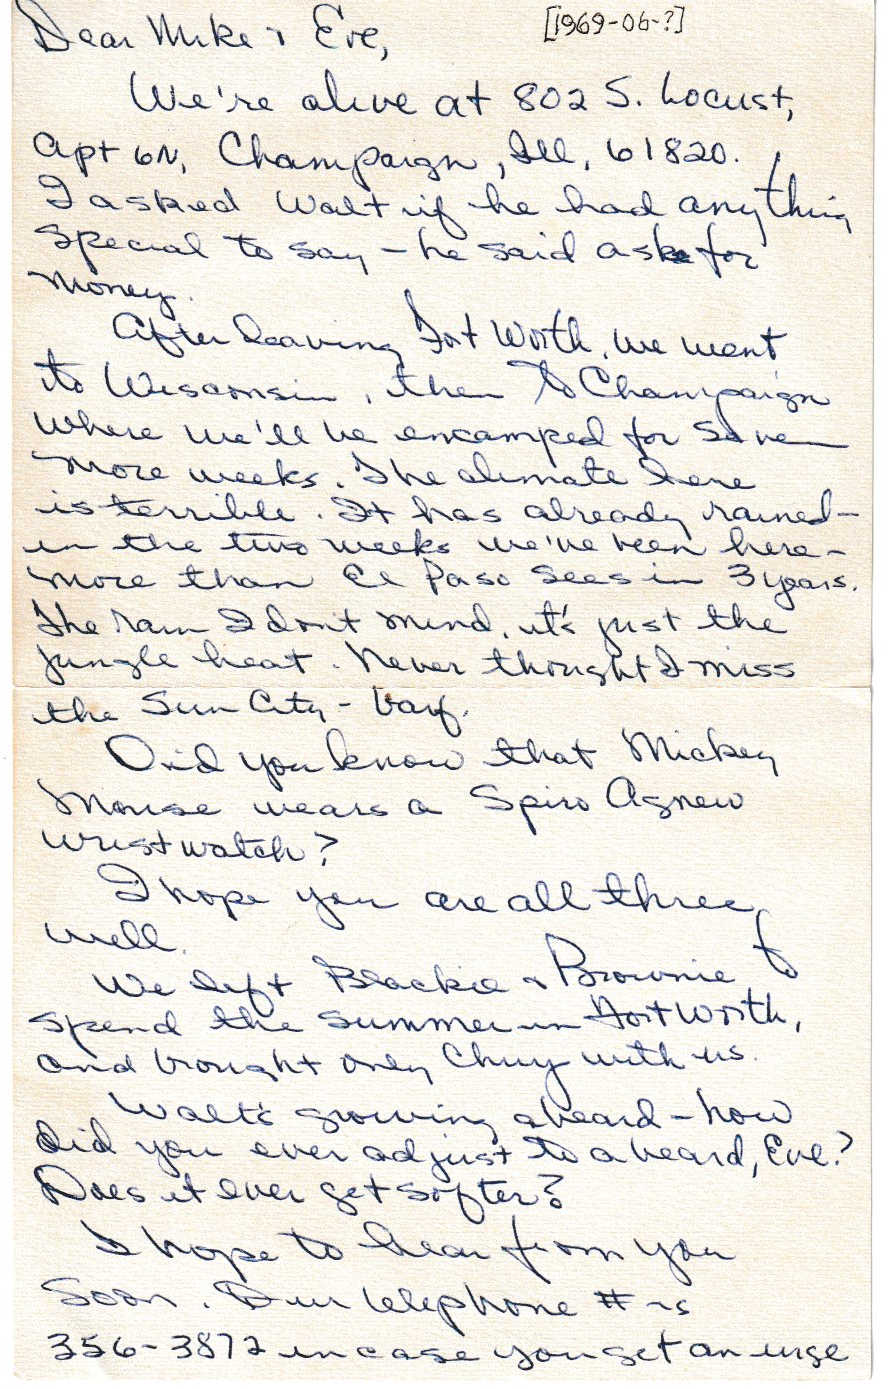 Dear Mike & Eve,
[1969-06-?]
We're alive at 802 S. Locust,
Apt 6N, Champaign, Ill, 61820.
I asked Walt if he had anything
special to say - he said ask for
money.
After leaving Fort Worth, we went
to Wisconsin, then to Champaign
where we'll be encamped for seven
more weeks. The climate here
is terrible. It has already rained -
in the two weeks we've been here -
more than El Paso sees in 3 years.
The rain I don't mind, it's just the
jungle heat. Never thought I miss
the Sun City - barf.
Did you know that Mickey
Mouse wears a Spiro Agnew
wristwatch?
I hope you are all three
well.
We left Blackie & Brownie to
spend the summer in Fort Worth,
and brought only Chuy with us.
Walt's growing a beard - how
did you ever adjust to a beard, Eve?
Does it ever get softer?
I hope to hear from you
soon. Our telephone # is
356-3872 in case you get an urge